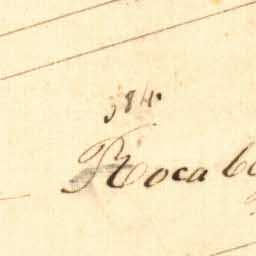 384.
Rocab